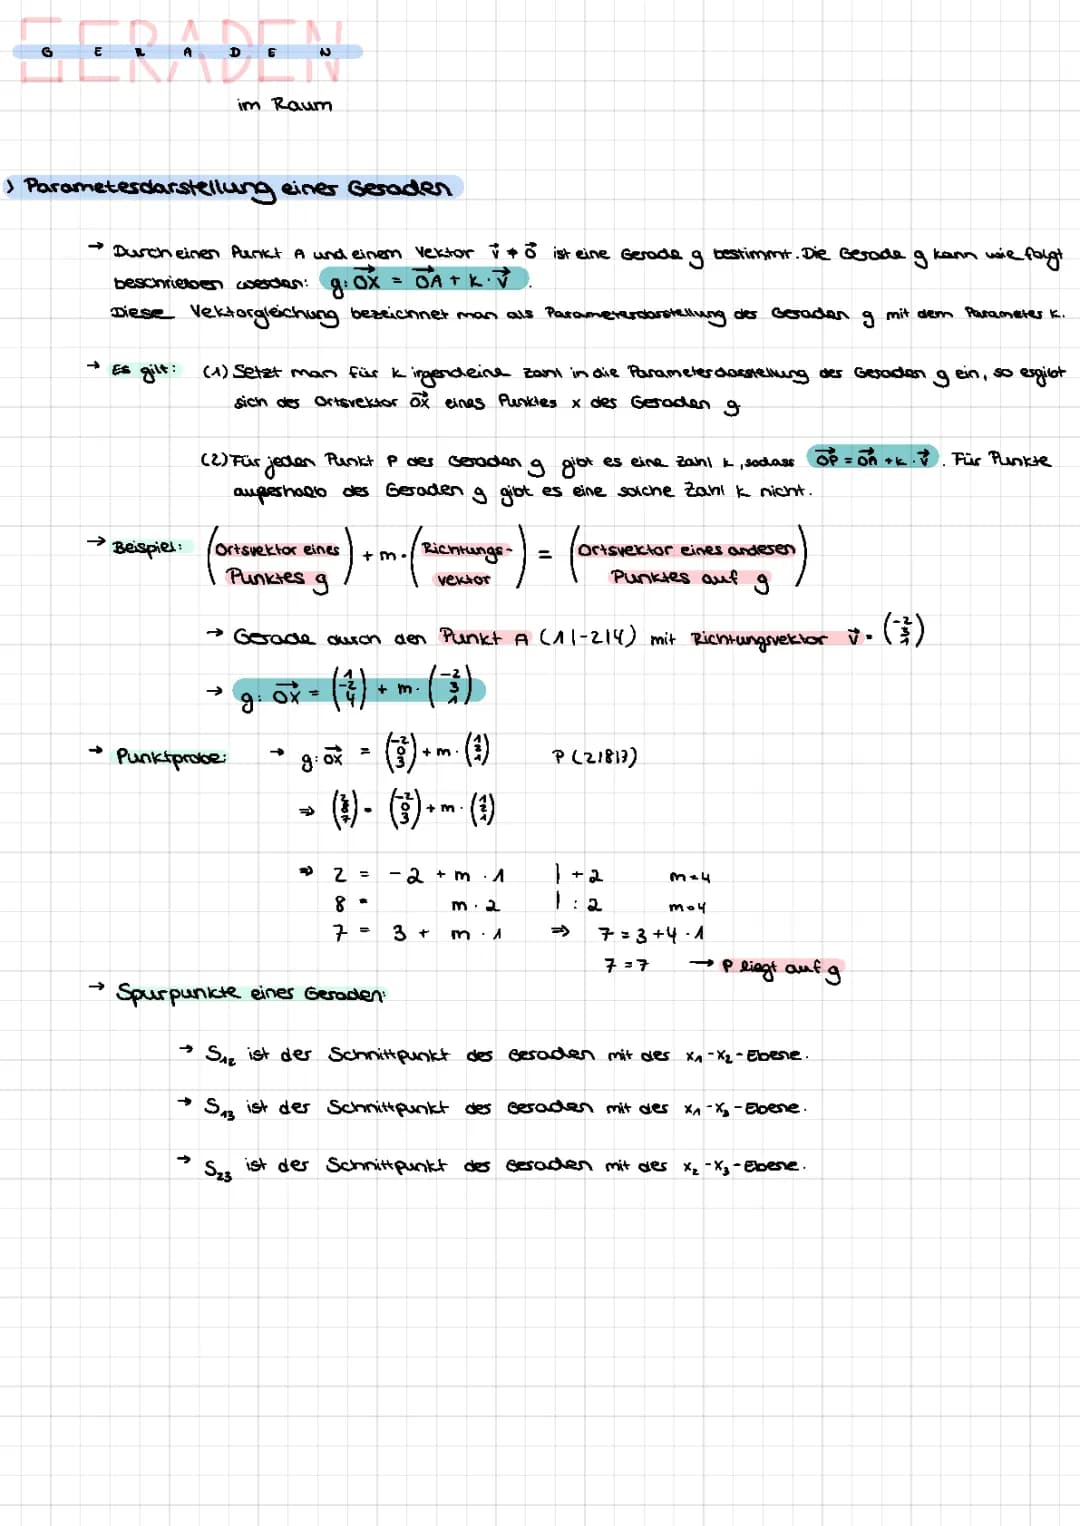 GERADEN
G E R A D E N
im Raum
) Parameterdarstellung einer Geraden
→ Durch einen Punkt A und einem Vektor v⃗ ≠ o⃗ ist eine Gerade g bestimmt. Die Gerade g kann wie folgt
beschrieben werden: g: OX⃗ = OA⃗ + k · v⃗.
Diese Vektorgleichung bezeichnet man als Parameterdarstellung der Geraden g mit dem Parameter k.
→ Es gilt: (1) Setzt man für k irgendeine Zahl in die Parameterdarstellung der Geraden g ein, so ergibt
sich der Ortsvektor OX⃗ eines Punktes x der Geraden g
(2) Für jeden Punkt P der Geraden g gibt es eine Zahl k, sodass OP⃗ = OA⃗ + k · v⃗. Für Punkte
außerhalb der Geraden g gibt es eine solche Zahl k nicht.
→ Beispiel: (Ortsvektor eines Punktes g) + m · (Richtungs-vektor) = (Ortsvektor eines anderen Punktes auf g)
→ Gerade durch den Punkt A (1|-2|4) mit Richtungsvektor v⃗ = (-2 3 1)
→ g: OX⃗ = (1 -2 4) + m · (-2 3 1)
→ Punktprobe: → g: OX⃗ = (-2 0 3) + m · (1 2 1) P (2|8|7)
⇒ (2 8 7) = (-2 0 3) + m · (1 2 1)
⇒ 2 = -2 + m · 1 | +2 m=4
8 = m · 2 | : 2 m=4
7 = 3 + m · 1 ⇒ 7 = 3 + 4 · 1
7 = 7 → P liegt auf g
→ Spurpunkte einer Geraden:
→ S₁₂ ist der Schnittpunkt der Geraden mit der x₁-x₂-Ebene.
→ S₁₃ ist der Schnittpunkt der Geraden mit der x₁-x₃-Ebene.
→ S₂₃ ist der Schnittpunkt der Geraden mit der x₂-x₃-Ebene.